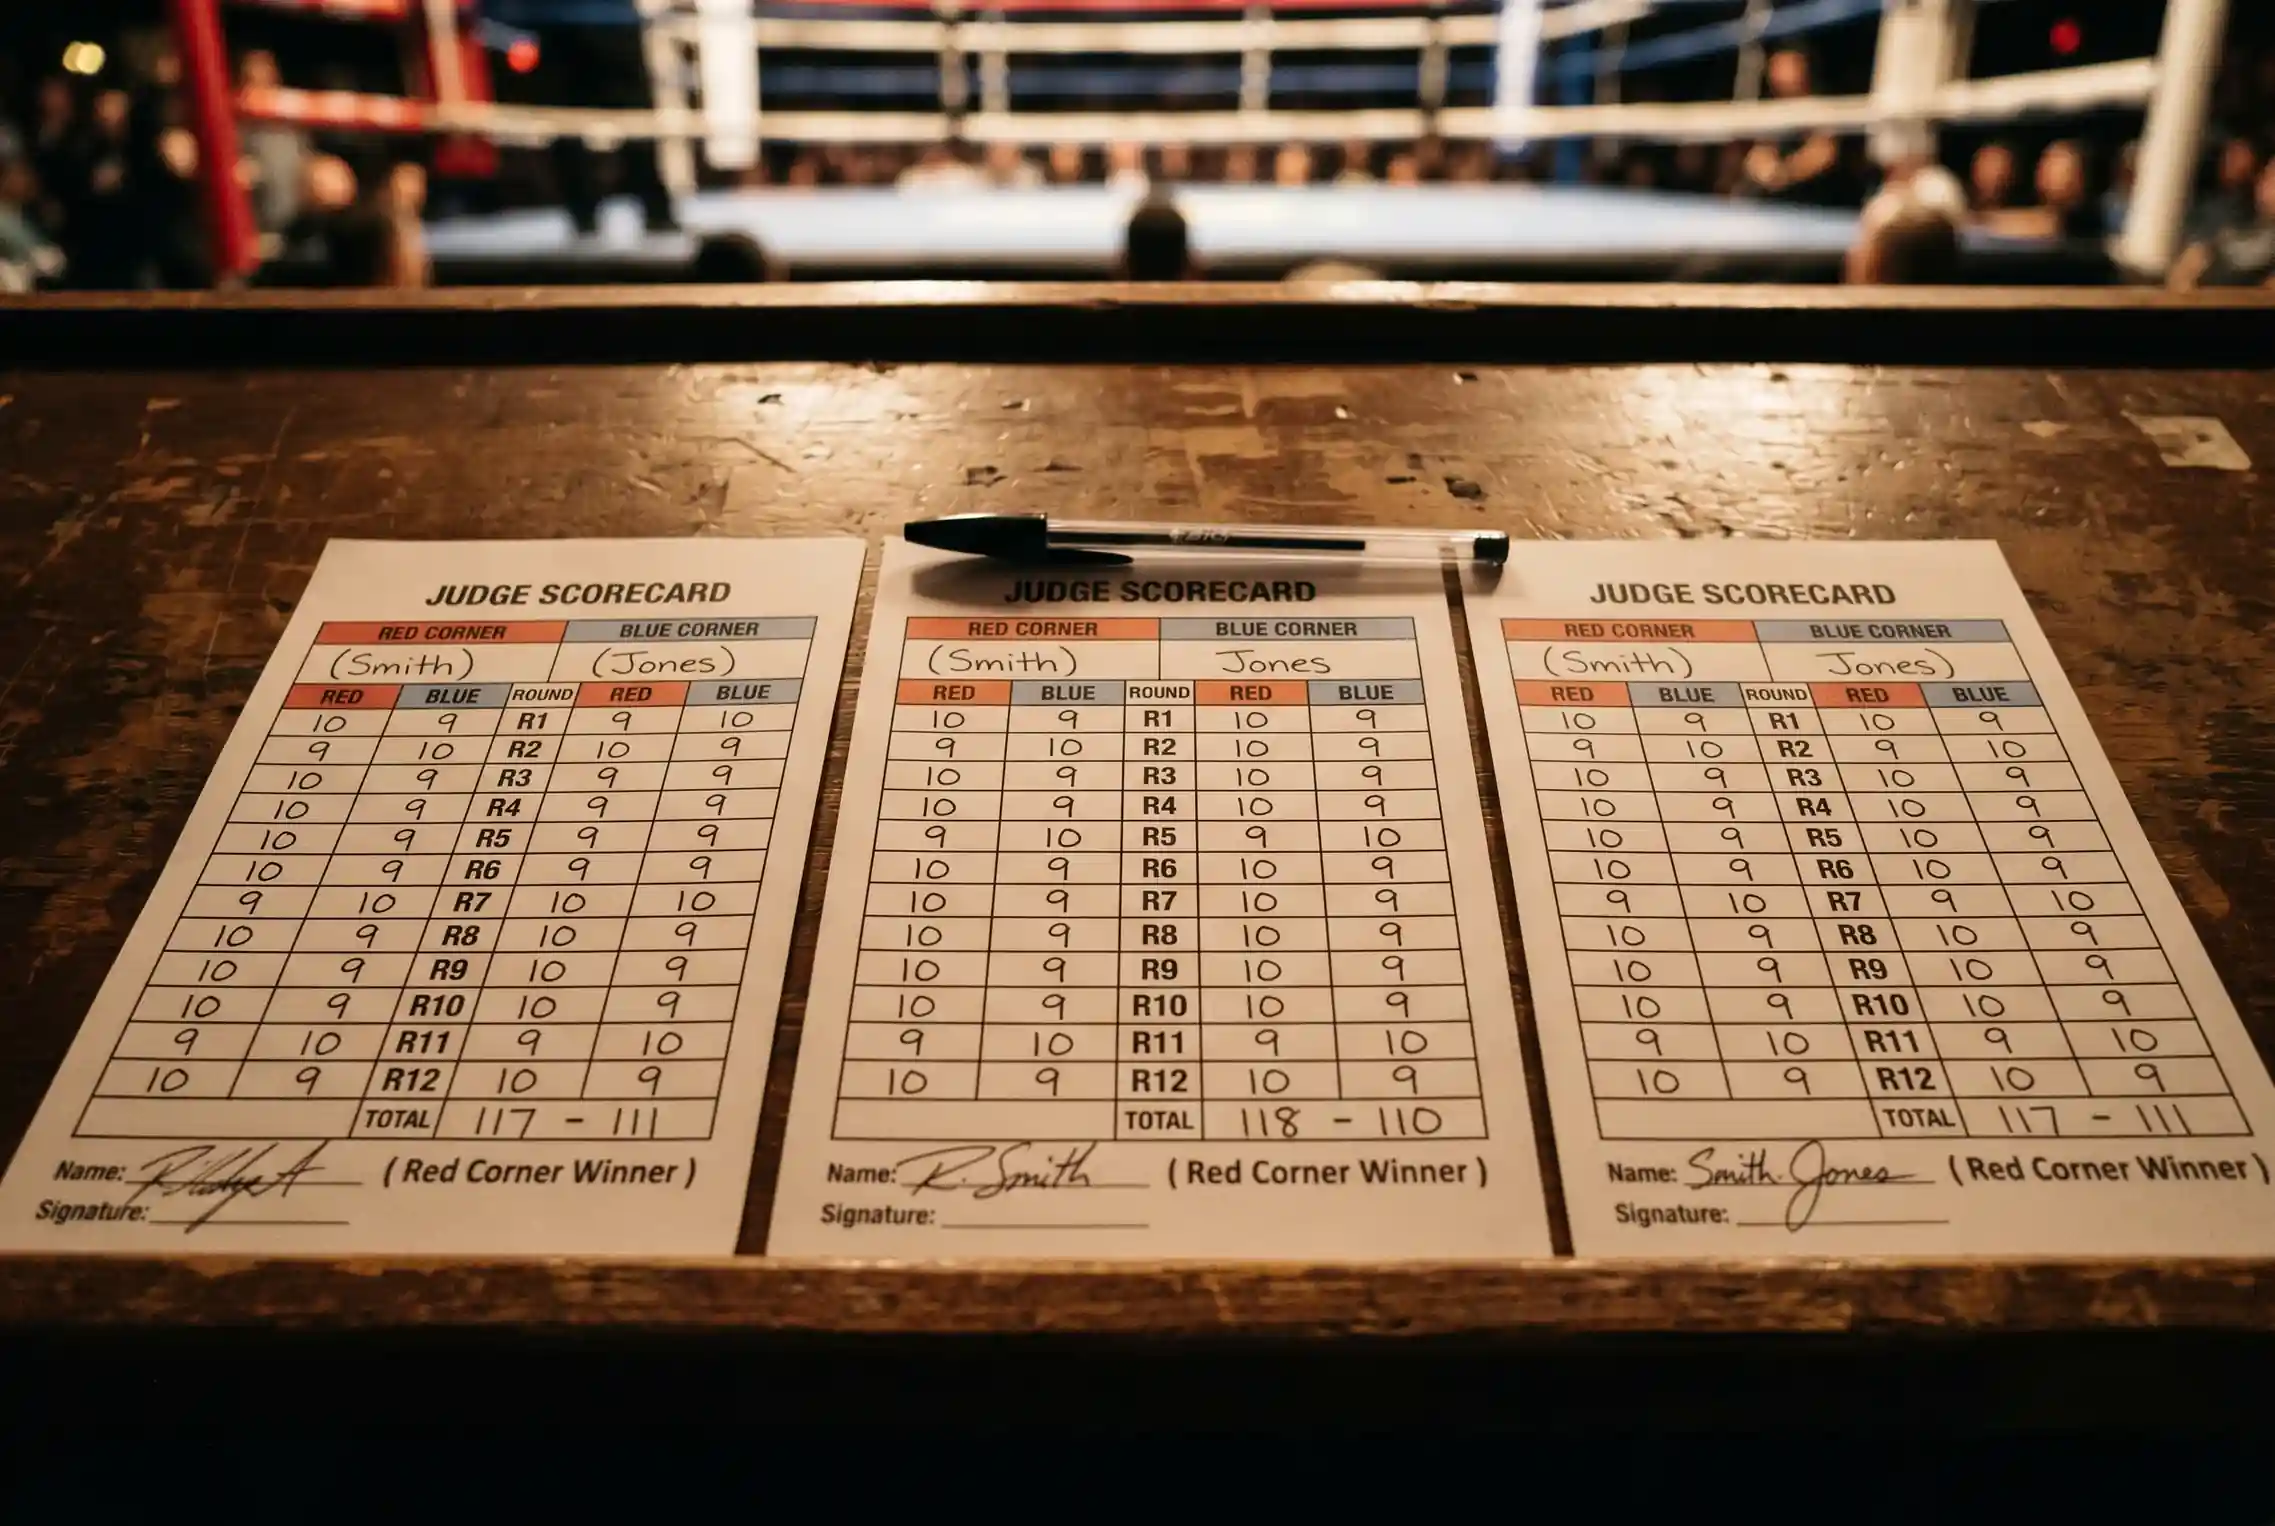 JUDGE SCORECARD
RED CORNER BLUE CORNER
(Smith) (Jones)
RED BLUE ROUND RED BLUE
10 9 R1 9 10
9 10 R2 10 9
10 9 R3 9 9
10 9 R4 9 9
10 9 R5 9 9
10 9 R6 9 9
9 10 R7 10 10
10 9 R8 10 9
10 9 R9 10 9
10 9 R10 10 9
9 10 R11 9 10
10 9 R12 10 9
TOTAL 117 - 111
Name: (Red Corner Winner)
Signature:
JUDGE SCORECARD
RED CORNER BLUE CORNER
(Smith) Jones
RED BLUE ROUND RED BLUE
10 9 R1 10 9
9 10 R2 10 9
10 9 R3 10 9
10 9 R4 10 9
9 10 R5 9 10
10 9 R6 10 9
10 9 R7 10 9
10 9 R8 10 9
10 9 R9 10 9
10 9 R10 10 9
9 10 R11 9 10
10 9 R12 10 9
TOTAL 118 - 110
Name: R. Smith (Red Corner Winner)
Signature:
JUDGE SCORECARD
RED CORNER BLUE CORNER
(Smith) Jones)
RED BLUE ROUND RED BLUE
10 9 R1 10 9
9 10 R2 9 10
10 9 R3 10 9
10 9 R4 10 9
10 9 R5 10 9
10 9 R6 10 9
9 10 R7 9 10
10 9 R8 10 9
10 9 R9 10 9
10 9 R10 10 9
9 10 R11 9 10
10 9 R12 10 9
TOTAL 117 - 111
Name: Smith. Jones (Red Corner Winner)
Signature: